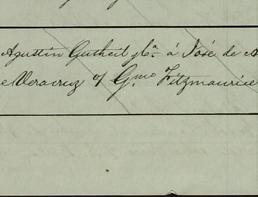 Agustin Gutheil pla. á José de A
e Veracruz y Gmo Fitzmaurice